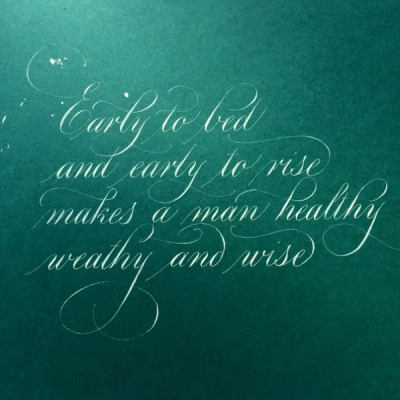 Early to bed
and early to rise
makes a man healthy
weathy and wise